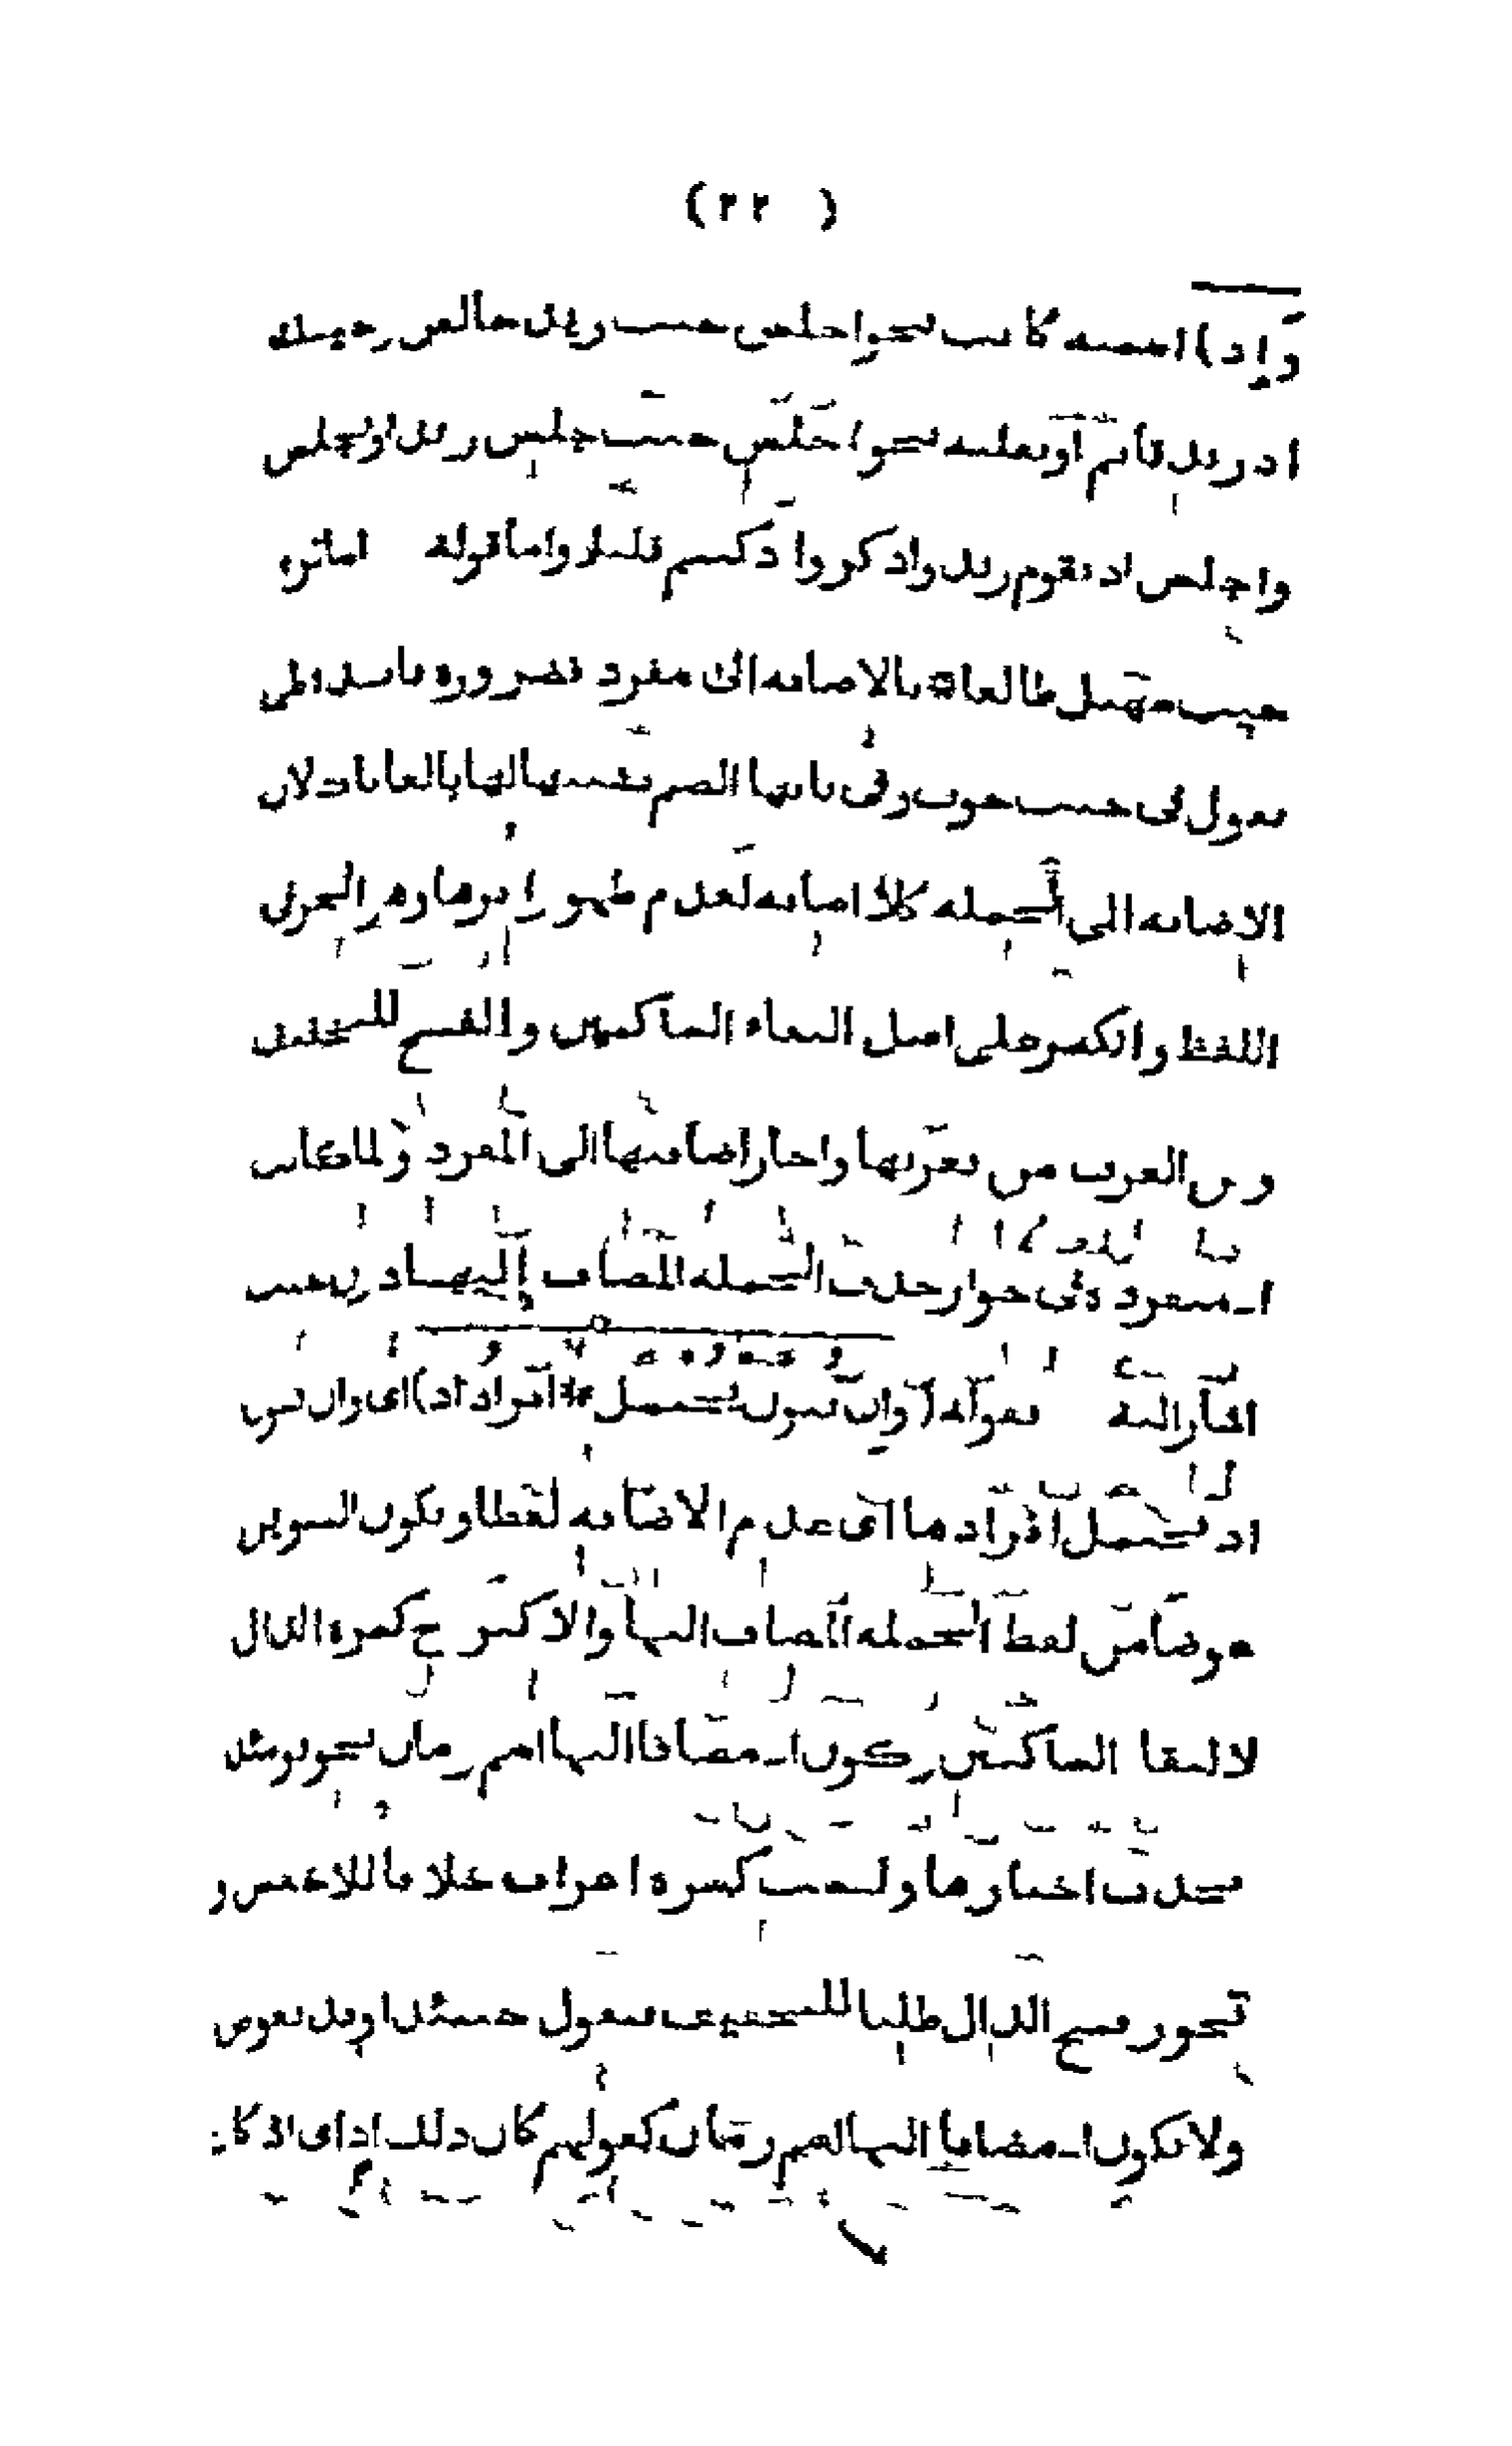 ( ٢٢ )
وإذ) اسمية كانت نحو اجلس حيث زيد جالس وجئتك
اذ زيد قائم أو فعلية نحو اجلس حيث جلس زيد او يجلس
واجلس اذ يقوم زيد واذكروا اذ كنتم قليلا واما قوله اما ترى
حيث سهيل طالعا * بالاضافة الى مفرد فضرورة
تقول في حيث حوث وفي ثائها الضم تشبيها لها بالغايات لان
الاضافة الى الجملة كلا اضافة لعدم ظهور اثرها وهو الجر في
اللفظ والكسر على اصل التقاء الساكنين والفتح للتخفيف
ومن العرب من يعربها واجاز اضافتها الى المفرد ولما كانت
اذ منفردة في جواز حذف الجملة المضاف إليها دون حيث
اشار اليه بقوله (وان ينون يحتمل * افراد اذ) اى وان ينون
اذ يحتمل افرادها اى عدم الاضافة لفظا ويكون التنوين
عوضا من لفظ الجملة المضاف اليها والاكثر ح كسرة الذال
لالتقا الساكنين ويكون اذ مضافا اليها اسم زمان نحو يومئذ
اخبارها وليست كسرة اعراب خلافا للاخفش و
يجوز فتح الذال طلبا للتخفيف فتقول حينئذا وقد تعوض
ولا تكون اذ مضافا اليها اسم زمان كقولهم كان ذلك اذا اى اذ كان